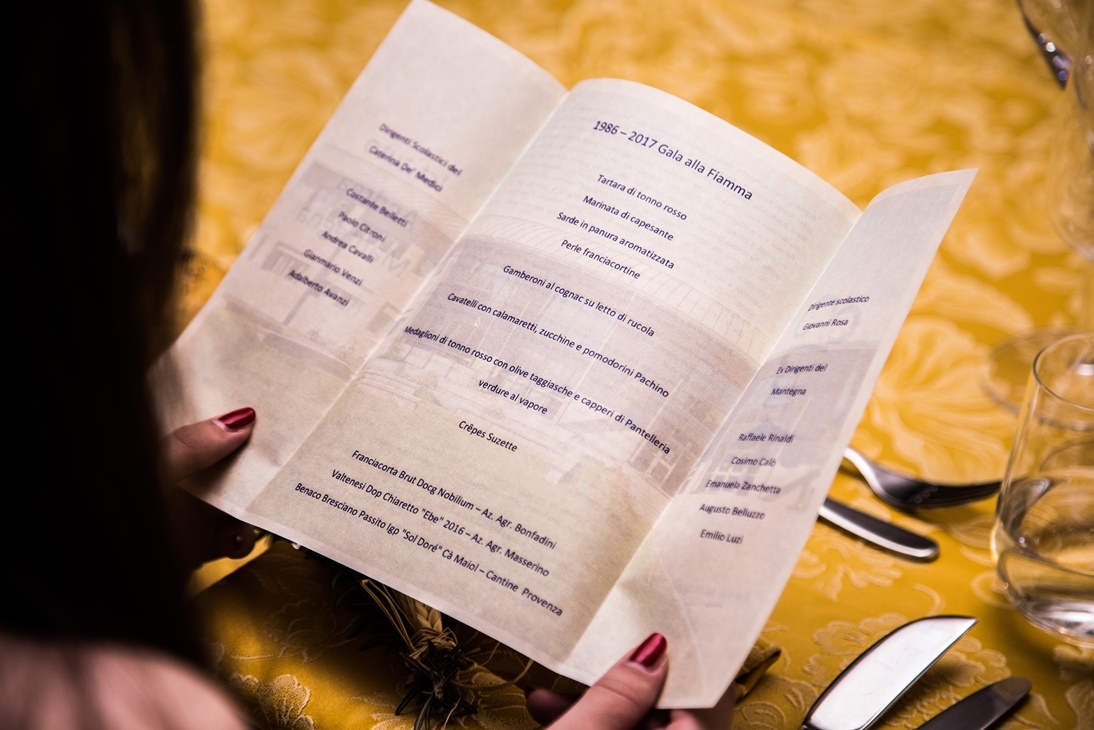 Dirigenti Scolastici del
Caterina De' Medici
Costante Belletti
Paolo Citroni
Andrea Cavalli
Gianmario Venzi
Adalberto Avanzi
1986 – 2017 Gala alla Fiamma
Tartara di tonno rosso
Marinata di capesante
Sarde in panura aromatizzata
Perle franciacortine
Gamberoni al cognac su letto di rucola
Cavatelli con calamaretti, zucchine e pomodorini Pachino
Medaglioni di tonno rosso con olive taggiasche e capperi di Pantelleria
verdure al vapore
Crêpes Suzette
Franciacorta Brut Docg Nobilium – Az. Agr. Bonfadini
Valtenesi Dop Chiaretto "Ebe" 2016 – Az. Agr. Masserino
Benaco Bresciano Passito Igp "Sol Doré" Cà Maiol – Cantine Provenza
Dirigente scolastico
Giovanni Rosa
Ex Dirigenti del
Mantegna
Raffaele Rinaldi
Cosimo Calò
Emanuela Zanchetta
Augusto Belluzzo
Emilio Luzi